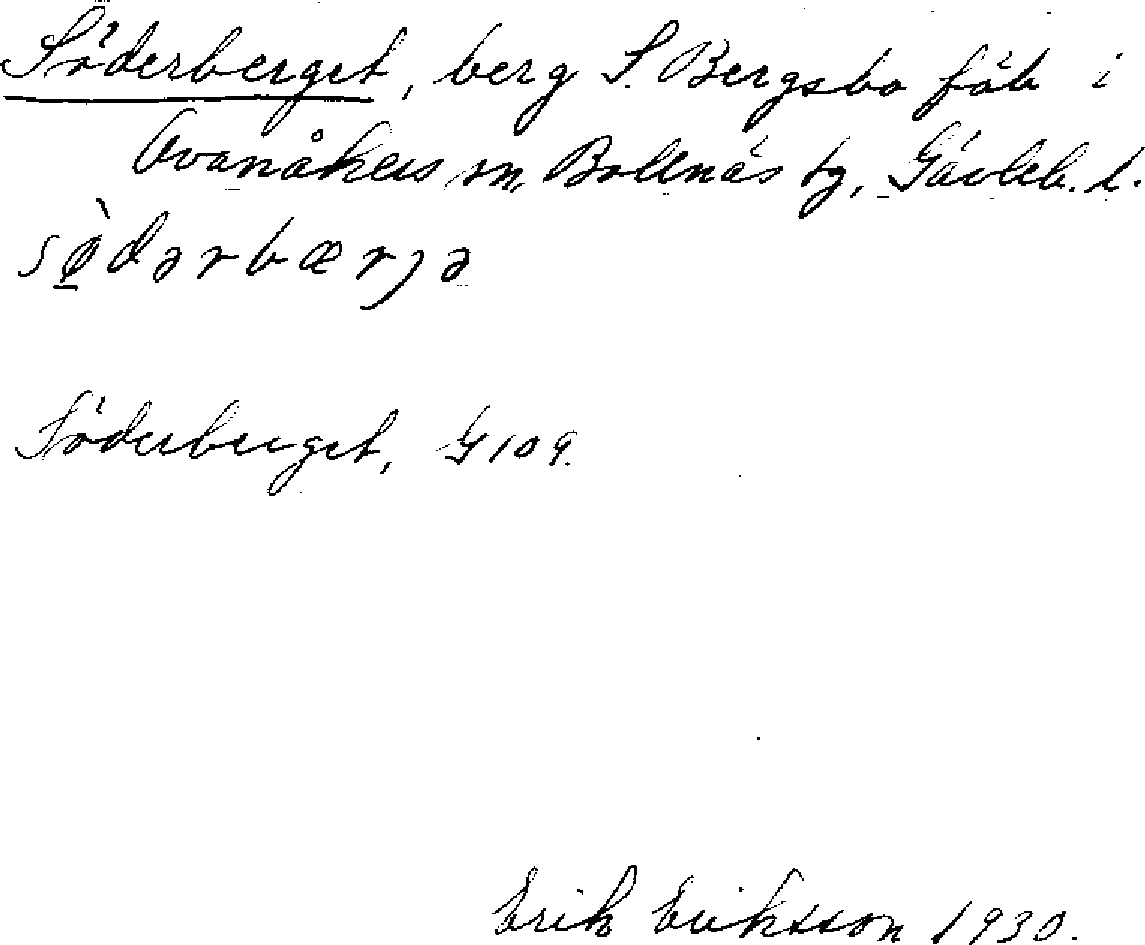 Söderberget, berg S. Bergsbo fäb i
Ovanåkers sn, Bollnäs tg, Gävleb. l.
sø̀dərbærjə
Söderberget, G 109.
Erik Eriksson 1930.